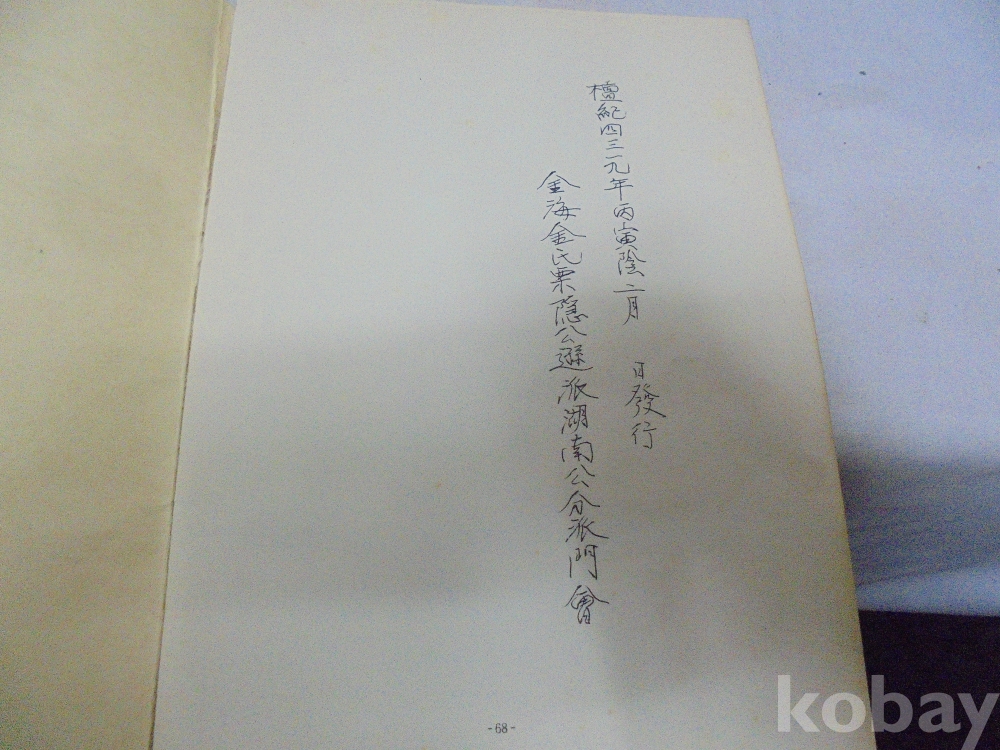 檀紀四三一九年丙寅陰二月 日發行
金海金氏栗隱公遜派湖南公分派門會
- 68 -
kobay